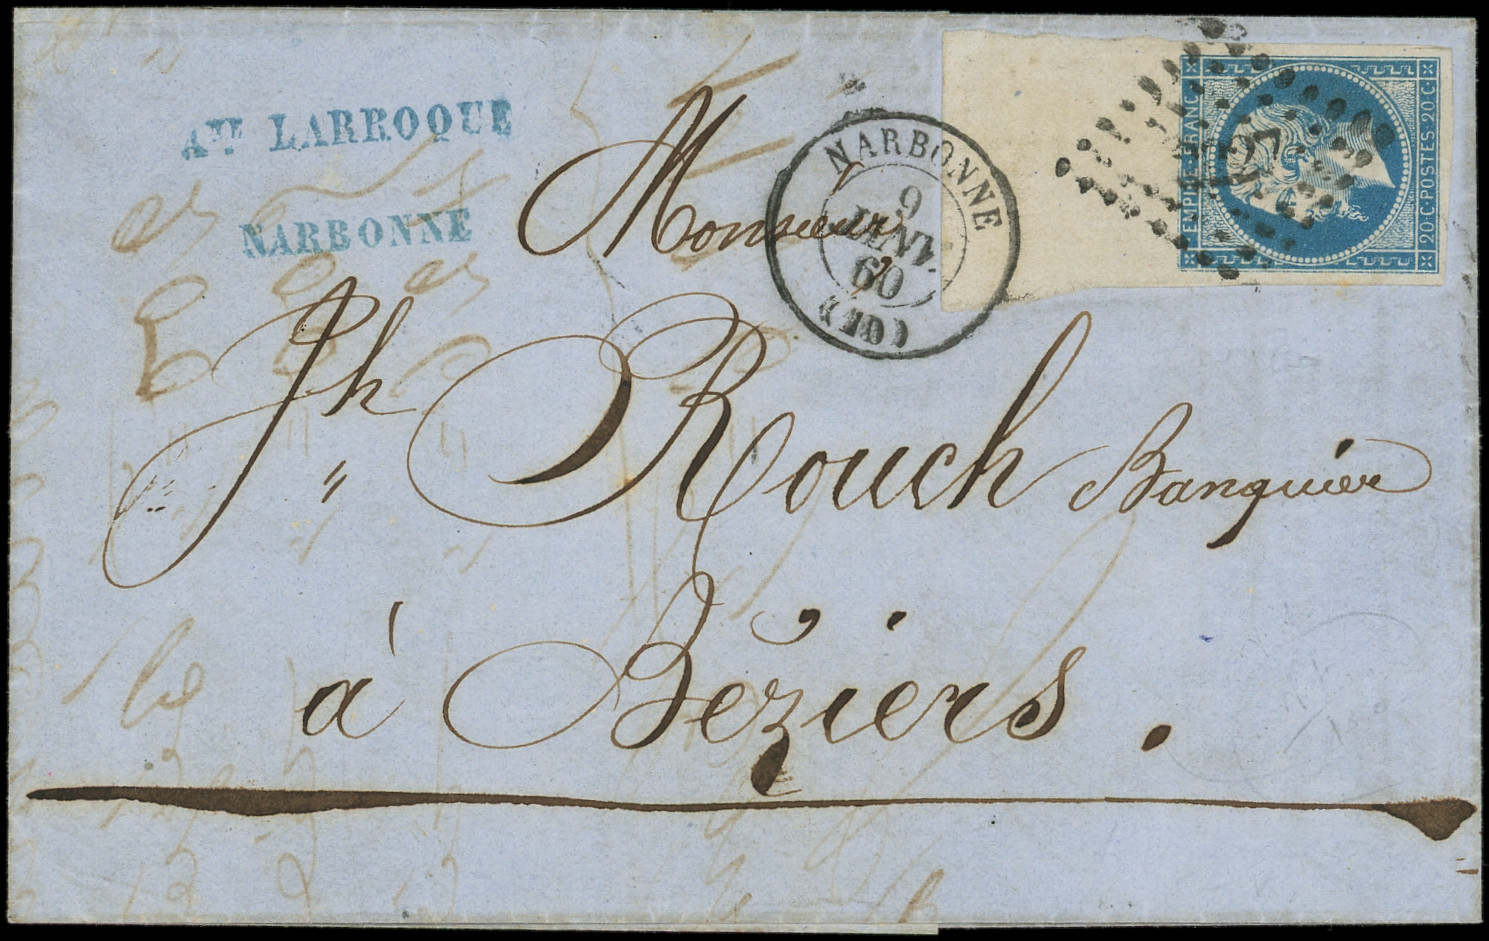 Ate LARROQUE
NARBONNE
NARBONNE
9
JANV.
60
EMPIRE FRANC
20.C.POSTES.20.C
Monsieur
Jh Rouch Banquier
à Béziers.